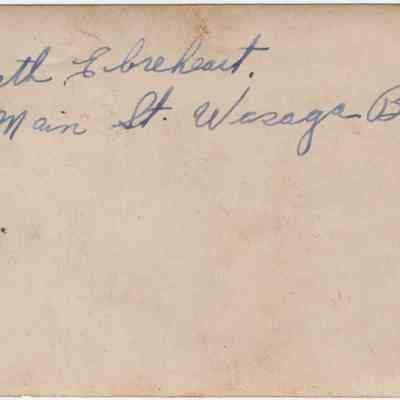 th Ebreheart.
Main St. Wasaga B